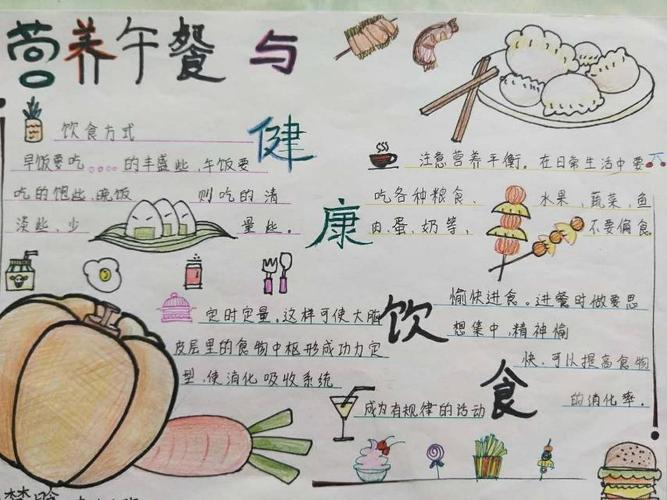 营养午餐与
健康
饮食
饮食方式
早饭要吃....的丰盛些，午饭要
吃的饱些，晚饭 则吃的清
淡些，少 量些。
定时定量，这样可使大脑
皮层里的食物中枢形成功力定
型，使消化吸收系统
成为有规律的活动
注意营养平衡。在日常生活中要
吃各种粮食、 水果，蔬菜，鱼
肉，蛋，奶等， 不要偏食
愉快进食。进餐时做要思
想集中，精神愉
快，可以提高食物
的消化率.